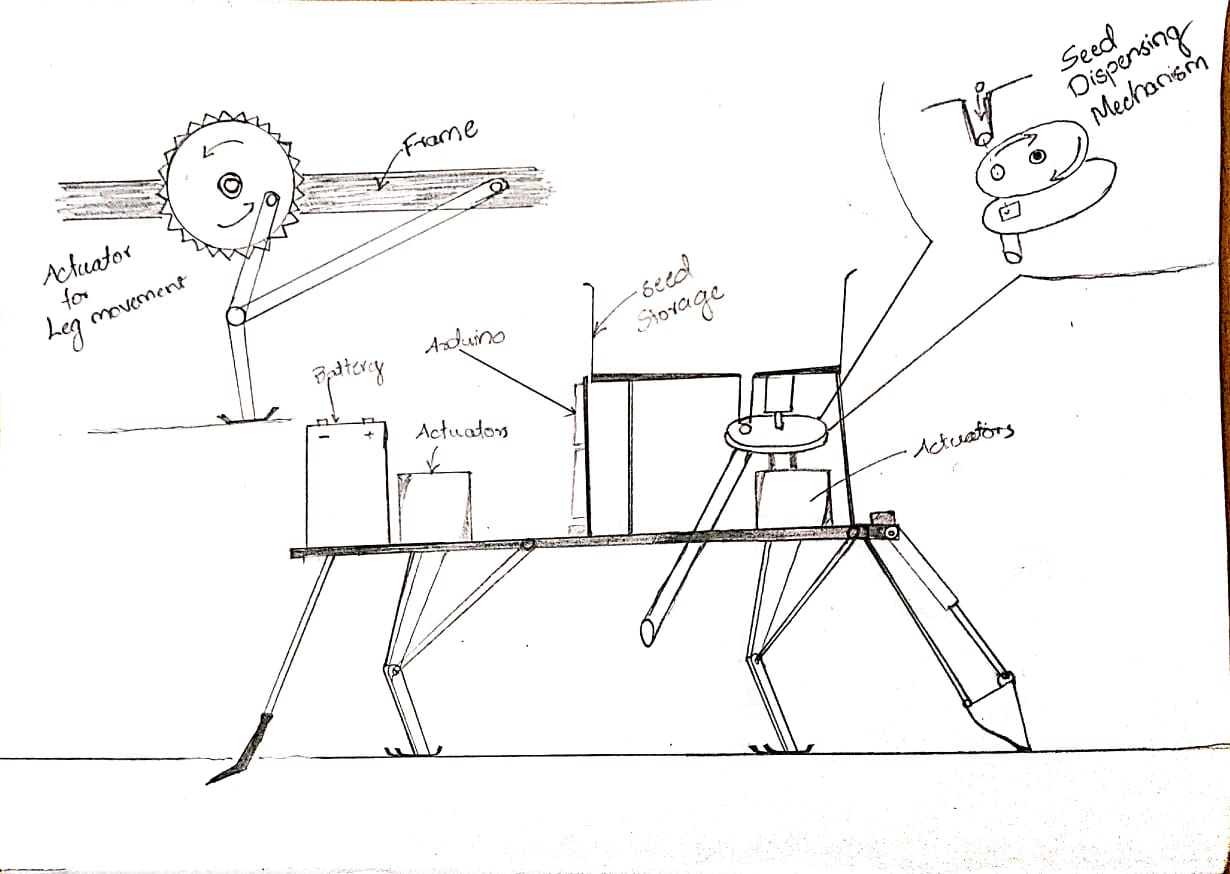 Seed
Dispensing
Mechanism
Frame
Actuator
for
Leg movement
Seed
Storage
Arduino
Battery
- +
Actuators
Actuators